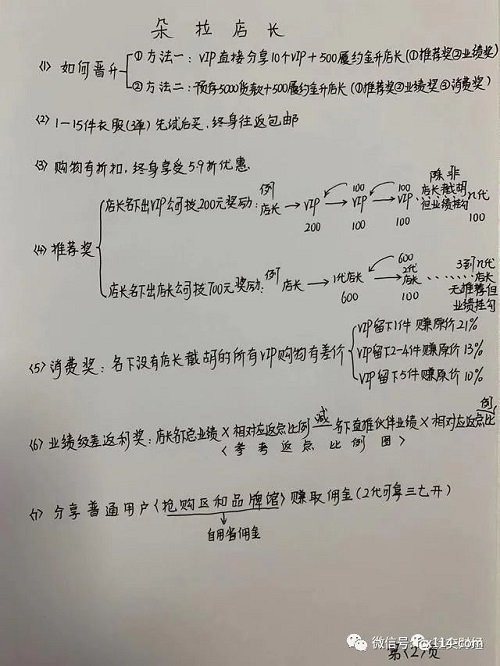 朵拉店长
<1> 如何晋升 ① 方法一：VIP直接分享10个VIP+500履约金升店长(①推荐奖②业绩奖)
② 方法二：预存5000货款+500履约金升店长(①推荐奖②业绩奖③消费奖)
<2> 1-15件衣服(3弹) 先试后买，终身往返包邮
<3> 购物有折扣，终身享受5.9折优惠
<4> 推荐奖
店长名下出VIP公司拨200元奖励：例 店长→VIP→VIP→VIP……n代
100 100
除非店长截胡但业绩挂勾
200 100 100 100
店长名下出店长公司拨700元奖励：例 店长→1代店长→2代店长……3到n代店长
600
无推荐但业绩挂勾
600 100
<5> 消费奖：名下没有店长截胡的所有VIP购物有差价
VIP留下1件 赚原价21%
VIP留下2-4件 赚原价13%
VIP留下5件 赚原价10%
<6> 业绩级差返利奖：店长名下总业绩×相对应返点比例 减 名下直推伙伴业绩×相对应返点比例
<参考返点比例图>
<7> 分享普通用户<抢购区和品牌馆>赚取佣金(2代可拿三七开)
自用省佣金
第<2>页